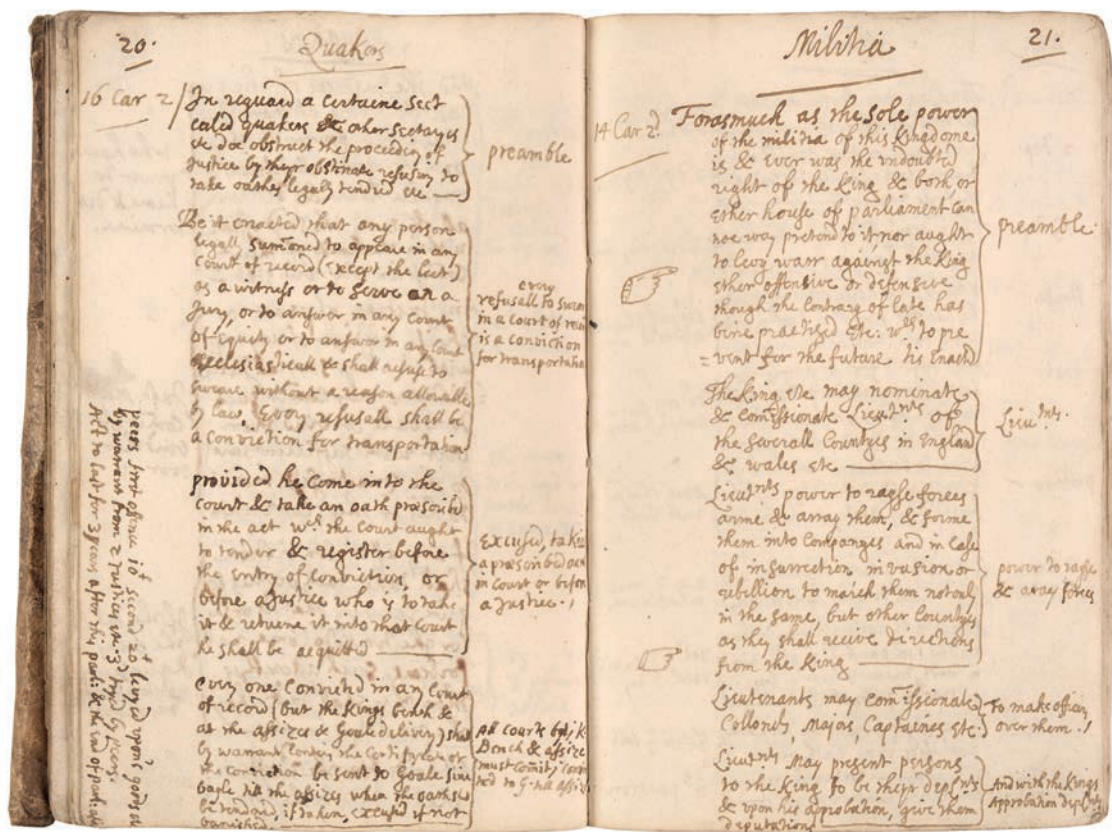 20.
Quakers
16 Car 2
In reguard a certaine Sect
caled quakers & other Sectaryes
etc doe obstruct the proceeding of
Justice by theyr obstinate refusing to
take oathes legaly tendred etc
preamble
Be it enacted that any person
legally sumoned to appeare in any
Court of record (except the leet)
as a witness or to serve on a
Jury, or to answer in any Court
of Equity or to answer in any Court
Ecclesiasticall & shall refuse to
sweare without a reason allowable
by law, Every refusall shall be
a Conviction for transportation
every
refusall to swear
in a court of record
is a conviction
for transportation
provided he come into the
court & take an oath prescribed
in the act wch the Court aught
to tender & register before
the entry of conviction, or
before a Justice who is to take
it & returne it into that Court
he shall be aquitted
Excused, taking
a prescribed oath
in Court or before
a Justice
every one Convicted in any Court
of record (but the Kings bench &
at the assizes & Goale delivery) shall
by warrant the of
the conviction be sent to Goale sine
baile till the assizes when the oath
be tendred, if taken, excused if not
banished
All courts but K
Bench & assizes
must comitt
ted to till assizes
peers first offence 10£ second 20£ levyed upon goods
by warrant from 2 Justices etc. 3d tryed by peers.
Act to last for 3 years after this parl: & the end of
Militia
21.
14 Car 2d
Forasmuch as the Sole power
of the militia of this Kingdome
is & Ever was the undoubted
right of the King & both or
Ether house of parliament can
noe way pretend to it nor aught
to Levy warr against the King
ether offensive or defensive
though the Contrary of late has
bene practised Etc: wch to pre
=vent for the future tis Enactd
preamble
The King etc may nominate
& Comissionate Lieutnts of
the Severall Countyes in England
& wales etc
Lieutnts
Lieutnts power to raysse forces
arme & array them, & forme
them into Companyes and in Case
of insurrection invasion or
rebellion to march them not only
in the same, but other Countyes
as they shall recive directions
from the King
power to raysse
& aray forces
Lieutenants may Comissionate
Collonels, Majors, Captaines etc
To make officers
over them
Lieutnts May present persons
to the King to be theyr depnts
& upon his approbation, give them
deputation
And with the Kings
Approbation